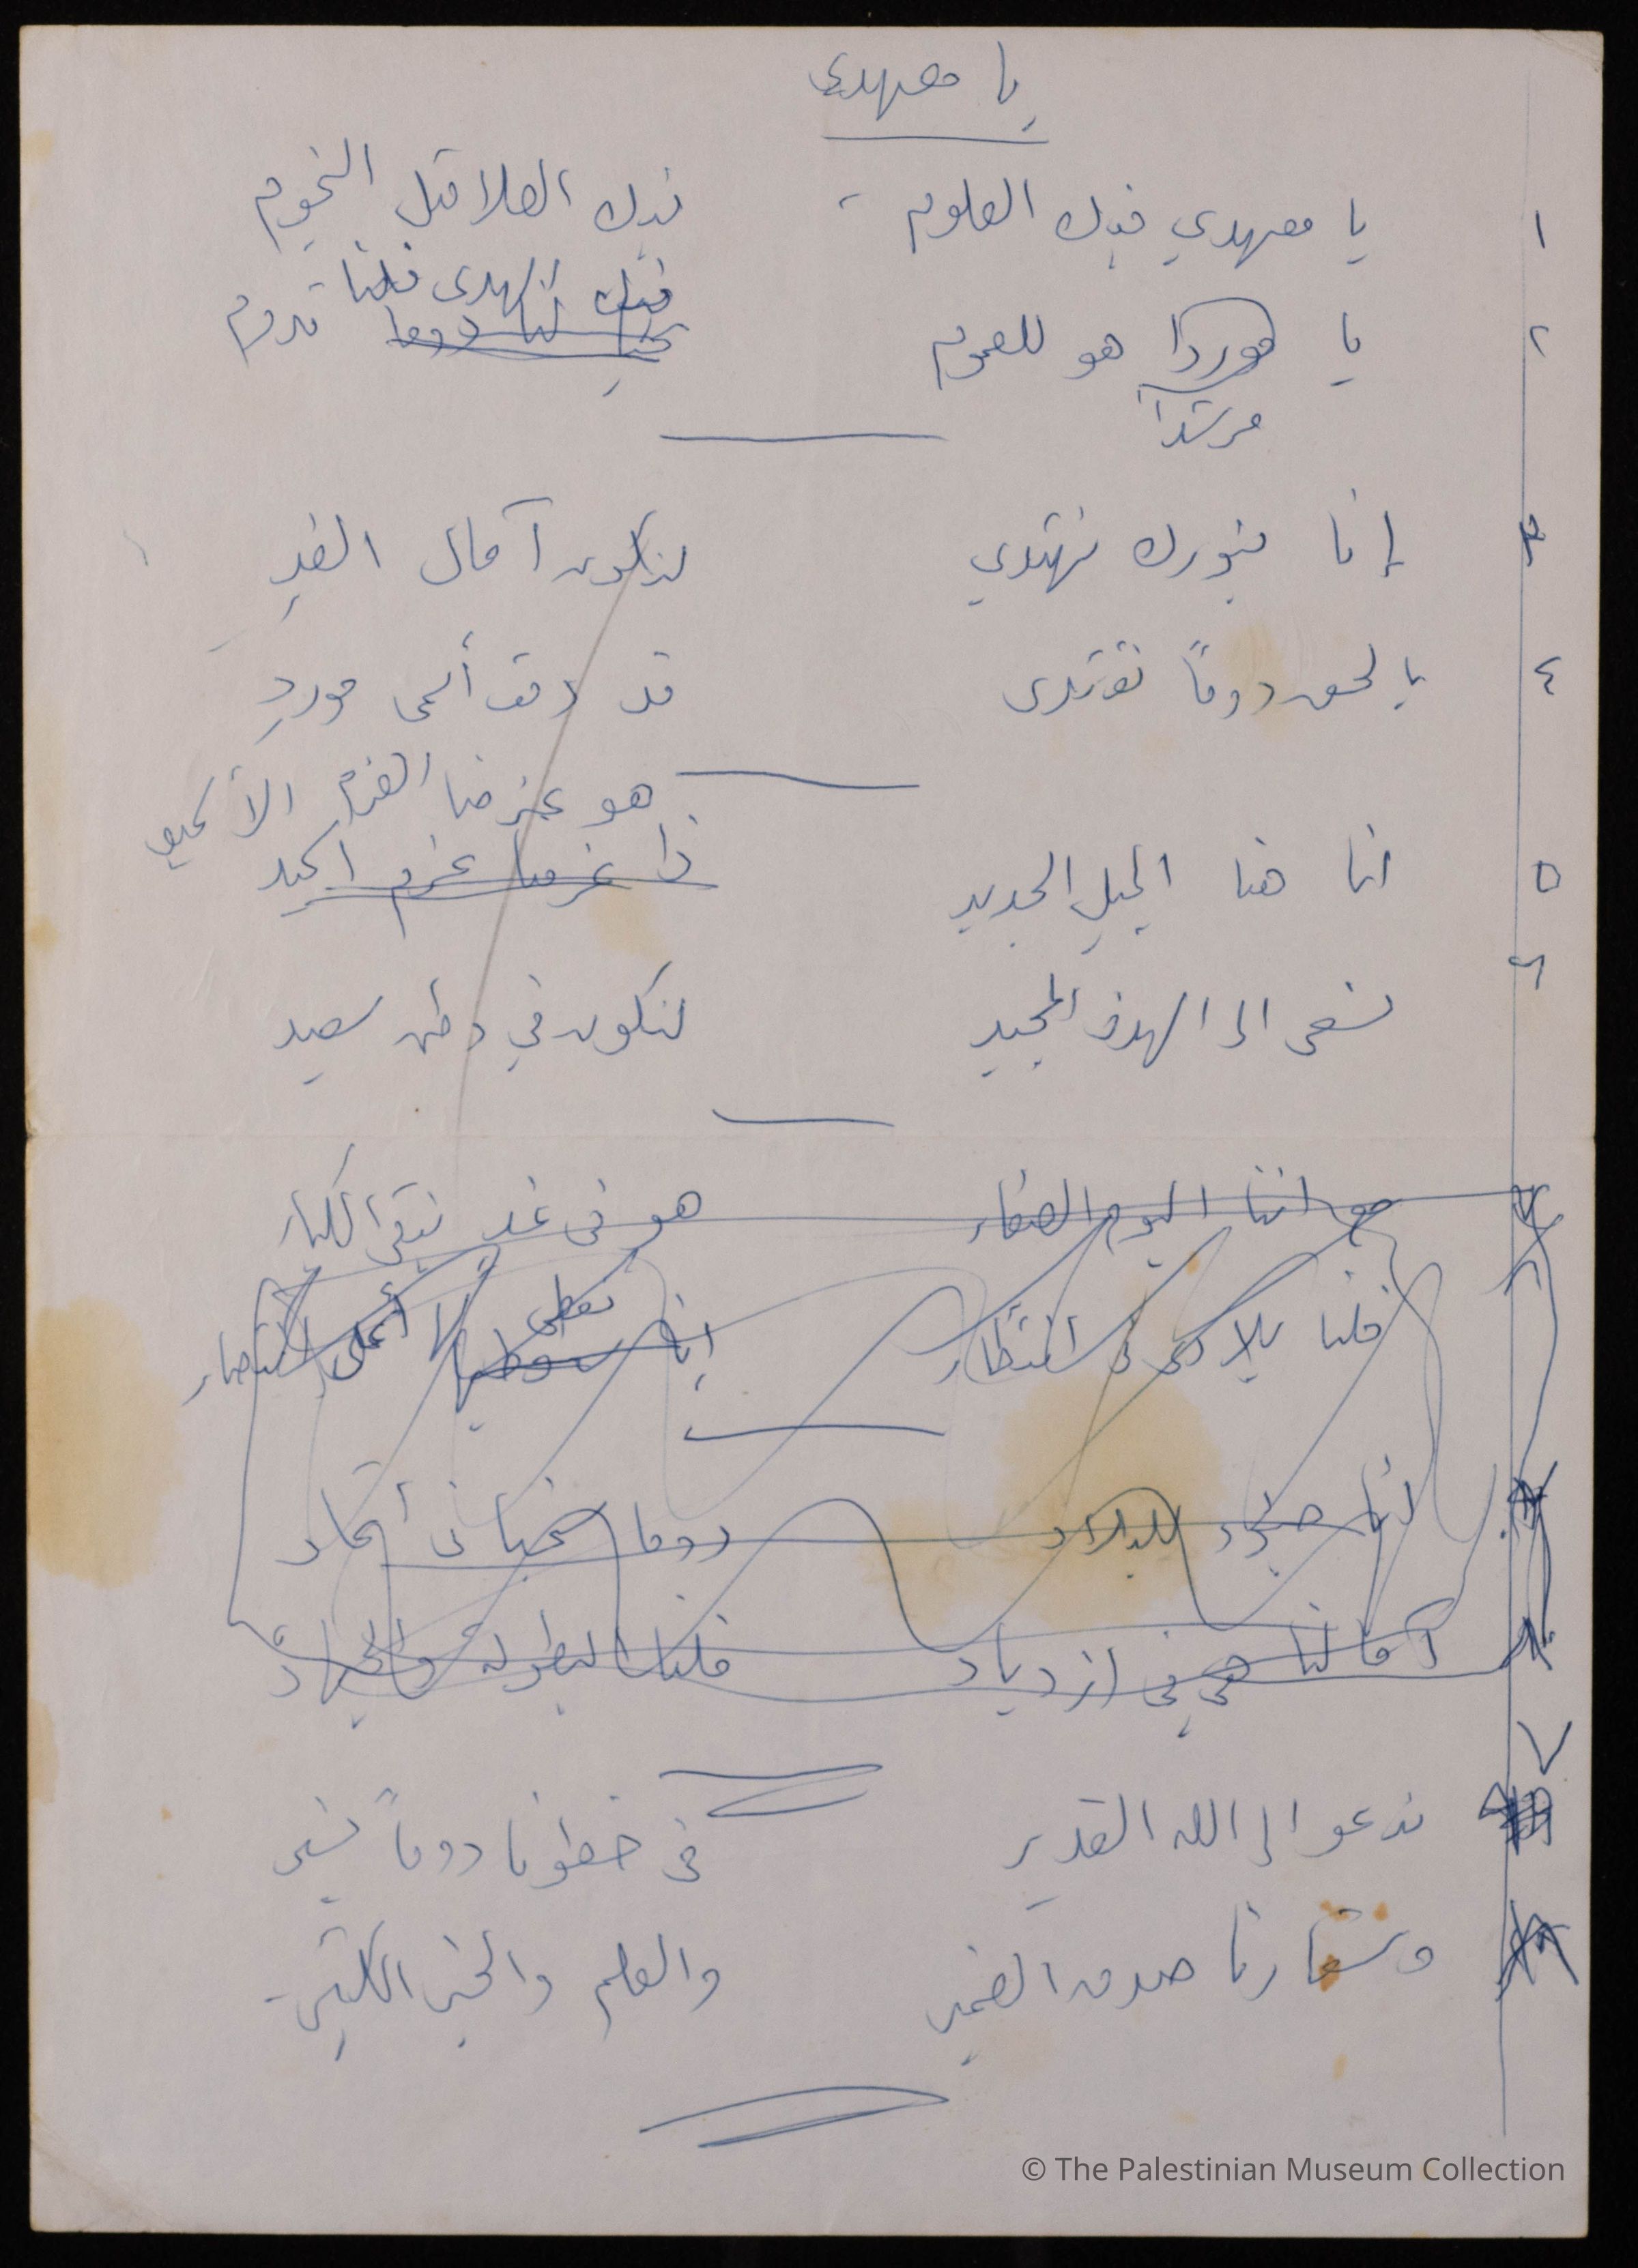 يا معهدي
١ يا معهدي فيك العلوم فيك العلا قبل النجوم
فيك الهدى فلنا
٢ يا موردا هو للعموم تحيا لنا دوما تدوم
مرشداً
٣ إنا بنورك نهتدي لنكون آمال الغدِ
٤ بالحق دوماً نقتدى قد دمت أسمى موردِ
هو عزمنا العزم الأكيد
٥ انا هنا الجيل الجديد ذا عزمنا عزم اكيد
٦ نسعى الى الهدف المجيد لنكون في وطن سعيد
٧ اننا اليوم الصغار هو في غدٍ نبقى الكبار
نعطى
فلنا بلادى في انتظار انا لها أعلى انتصار
انا جنود للبلاد دوما نحيا في اتحاد
آمالنا هي في ازدياد فلنا البطولة والجهاد
٧ ندعو الى الله القدير في خطونا دوماً نسير
وشعارنا صدق الضمير والعلم والخير الكثير
© The Palestinian Museum Collection